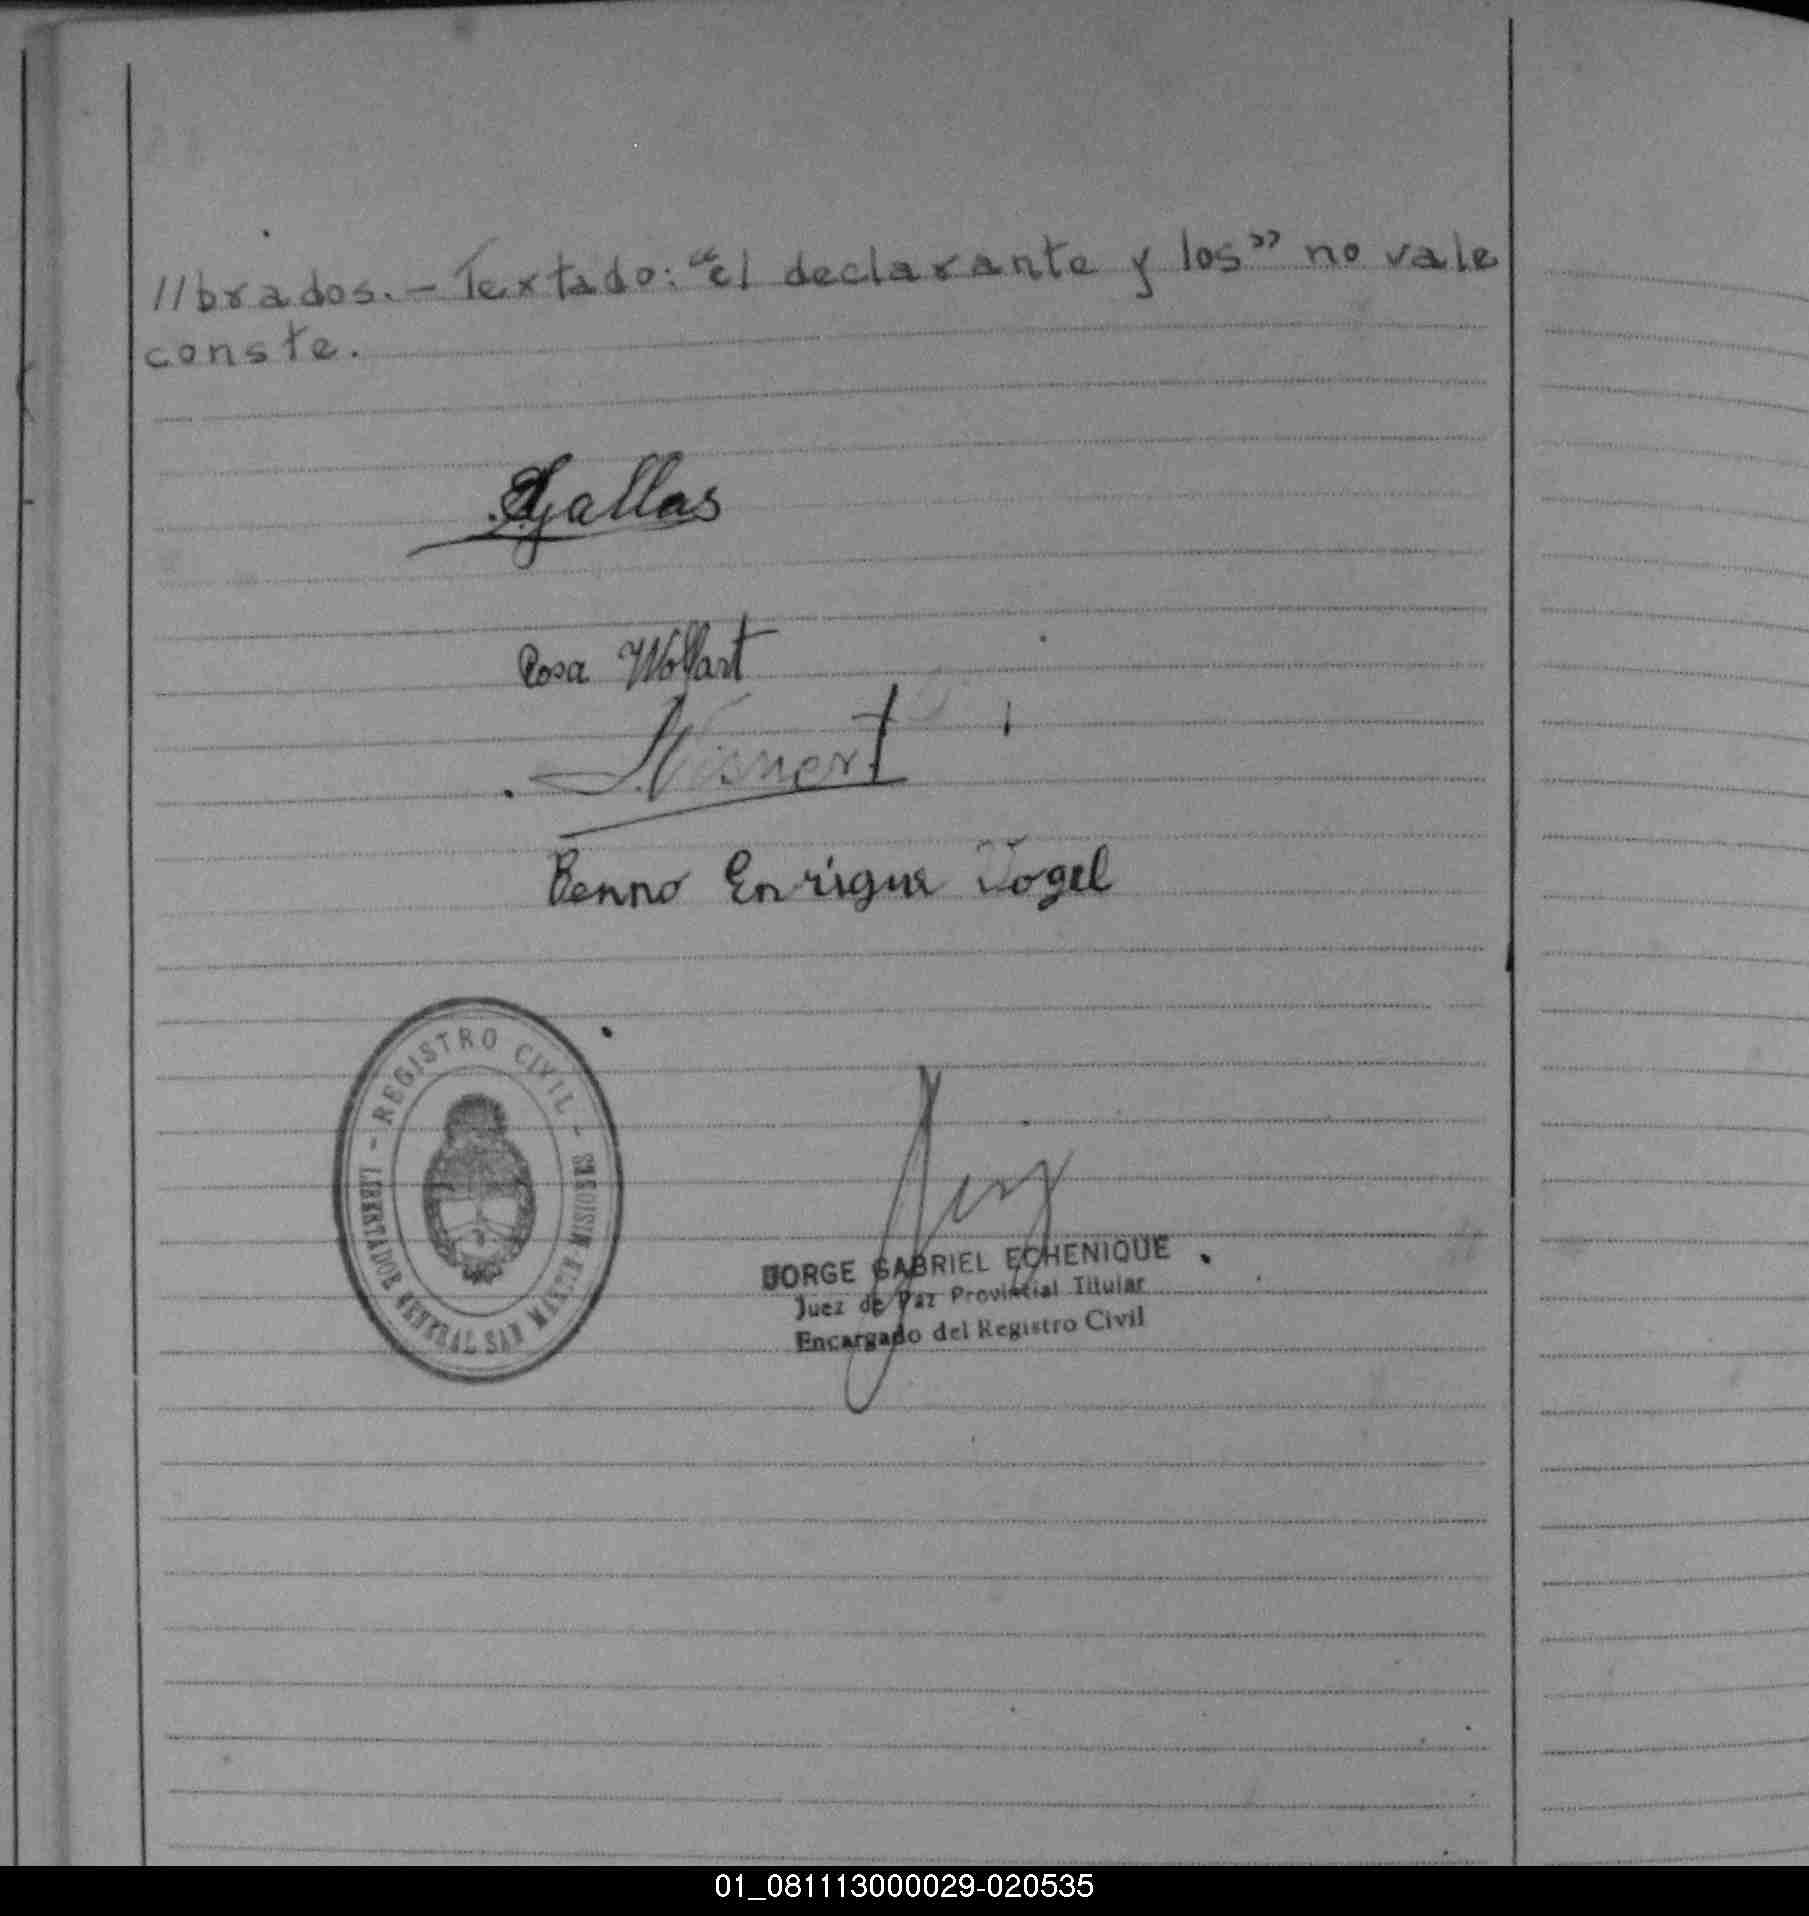 //brados.- Textado: "el declarante y los" no vale
conste.
Gallas
Rosa Wollart
Benno Enrique Vogel
- REGISTRO CIVIL -
LIBERTADOR GENERAL SAN MARTIN MISIONES
JORGE GABRIEL ECHENIQUE
Juez de Paz Provincial Titular
Encargado del Registro Civil
01_081113000029-020535